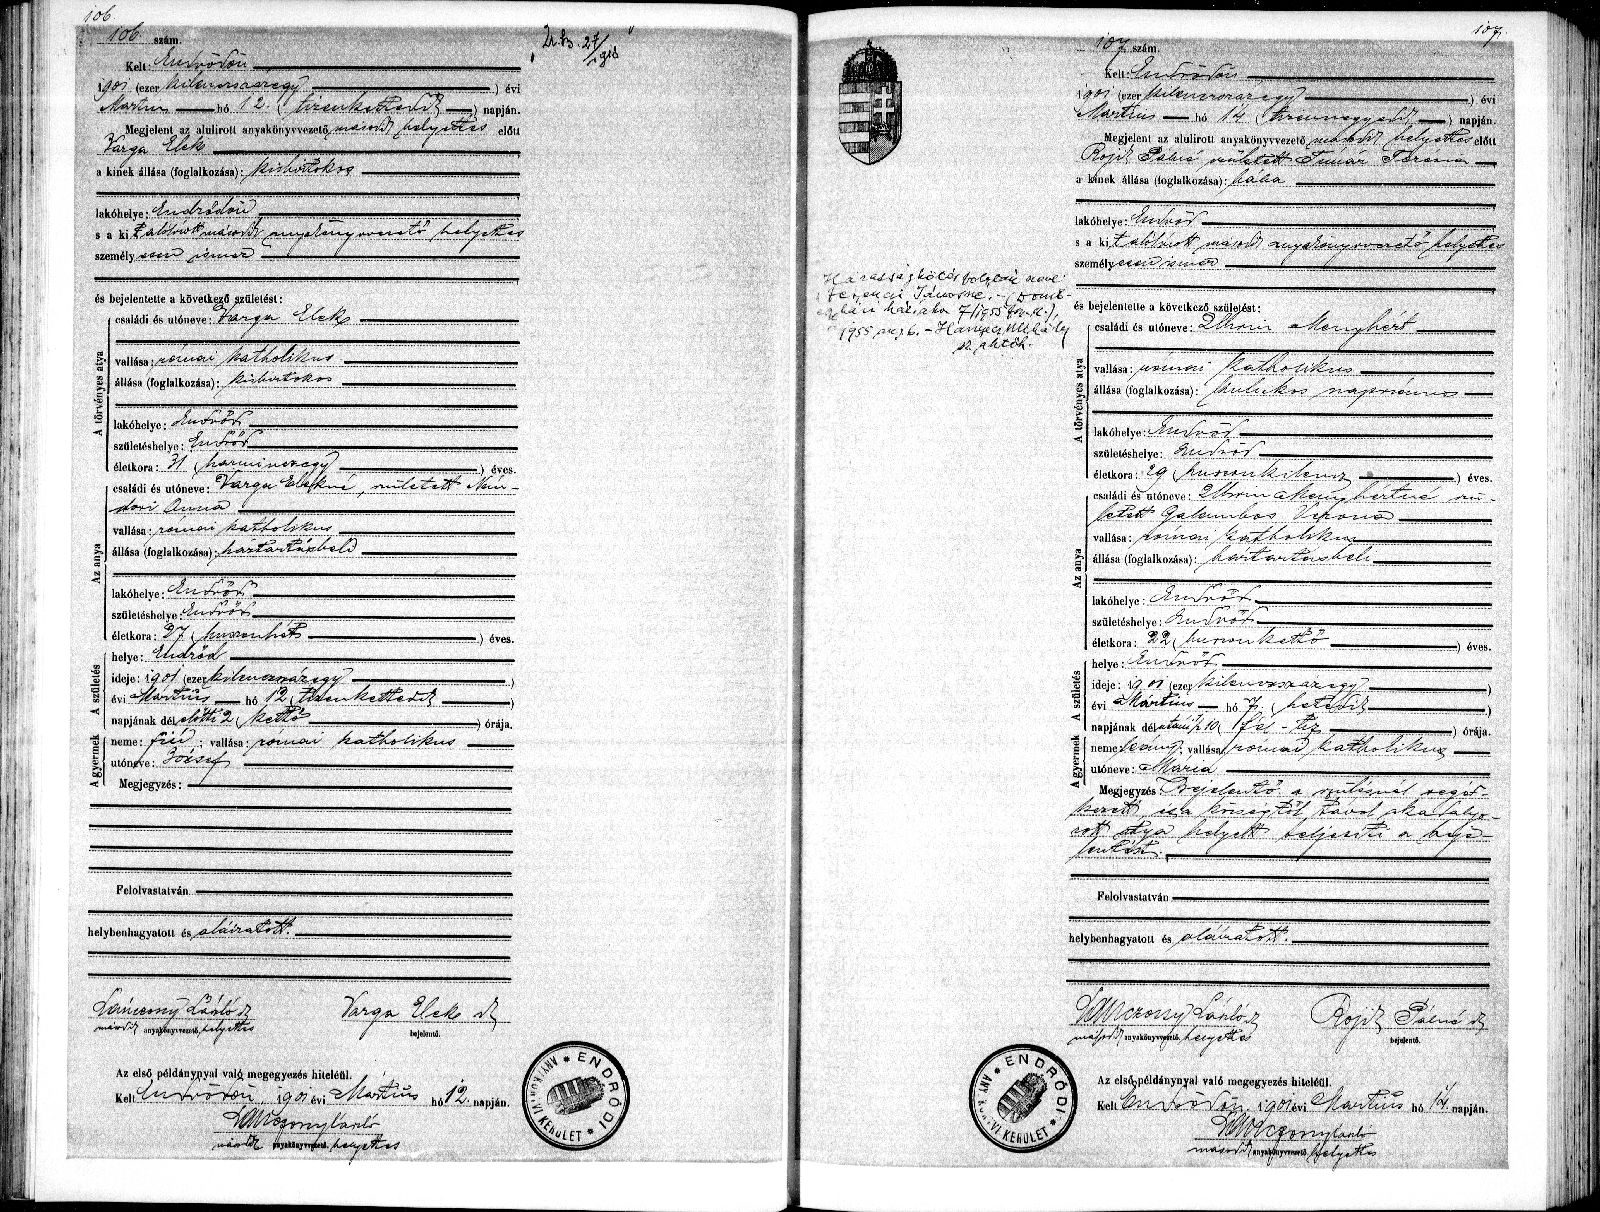 106.
106. szám.
Kelt: Endrődön
1901 (ezer kilenczszázegy) évi
Martius hó 12. (tizenkettedik) napján.
Megjelent az alulirott anyakönyvvezető másodk helyettes előtt
Varga Elek
a kinek állása (foglalkozása): kisbirtokos
lakóhelye: Endrődön
s a kit alólirott másodk anyakönyvvezető helyettes
személyesen ismer
és bejelentette a következő születést:
A törvényes atya
családi és utóneve: Varga Elek
vallása: római katholikus
állása (foglalkozása): kisbirtokos
lakóhelye: Endrőd
születéshelye: Endrőd
életkora: 31 (harminczegy) éves.
Az anya
családi és utóneve: Varga Elekné, született
Anna
vallása: római katholikus
állása (foglalkozása): háztartásbeli
lakóhelye: Endrőd
születéshelye: Endrőd
életkora: 27 (huszonhét) éves.
A születés
helye: Endrőd
ideje: 1901 (ezer kilenczszázegy)
évi Mártius hó 12 (tizenkettedik)
napjának dél előtti 2 (kettő) órája.
A gyermek
neme: fiú; vallása: római katholikus
utóneve: József
Megjegyzés:
Felolvastatván
helybenhagyatott és aláiratott.
Lánczony László
Varga Elek
másodk anyakönyvvezető helyettes
bejelentő.
Az első példánynyal való megegyezés hiteléül.
Kelt Endrődön, 1901 évi Mártius hó 12. napján.
Lánczony László
másodk anyakönyvvezető helyettes
ENDRŐDI ANYAKÖNYVI KERÜLET
107.
107 szám.
Kelt: Endrődön
1901 (ezer kilenczszázegy) évi
Martius hó 14 (tizennegyedik) napján.
Megjelent az alulirott anyakönyvvezető másodk helyettes előtt
Rojik Pálné született Timár Terézia
a kinek állása (foglalkozása): bába
lakóhelye: Endrőd
s a kit alólirott másodk anyakönyvvezető helyettes
személyesen ismer
és bejelentette a következő születést:
A törvényes atya
családi és utóneve: Menyhért
vallása: római katholikus
állása (foglalkozása): kubikos napszámos
lakóhelye: Endrőd
születéshelye: Endrőd
életkora: 29 (huszonkilencz) éves.
Az anya
családi és utóneve: Menyhértné szü-
letett Galambos Verona
vallása: római katholikus
állása (foglalkozása): háztartásbeli
lakóhelye: Endrőd
születéshelye: Endrőd
életkora: 22 (huszonkettő) éves.
A születés
helye: Endrőd
ideje: 1901 (ezer kilenczszázegy)
évi Mártius hó 7 (hetedik)
napjának dél utáni ½ 10 (fél-tiz) órája.
A gyermek
neme: leány; vallása: római katholikus
utóneve: Mária
Megjegyzés Bejelentő a szülésnél segéd-
kezett és a községtől távol
atya helyett teljesiti a beje-
lentést.
Felolvastatván
helybenhagyatott és aláiratott.
Lánczony László
Rojik Pálné
másodk anyakönyvvezető helyettes
bejelentő.
Az első példánynyal való megegyezés hiteléül.
Kelt Endrődön, 1901 évi Martius hó 14. napján.
Lánczony László
másodk anyakönyvvezető helyettes
ENDRŐDI ANYAKÖNYVI KERÜLET